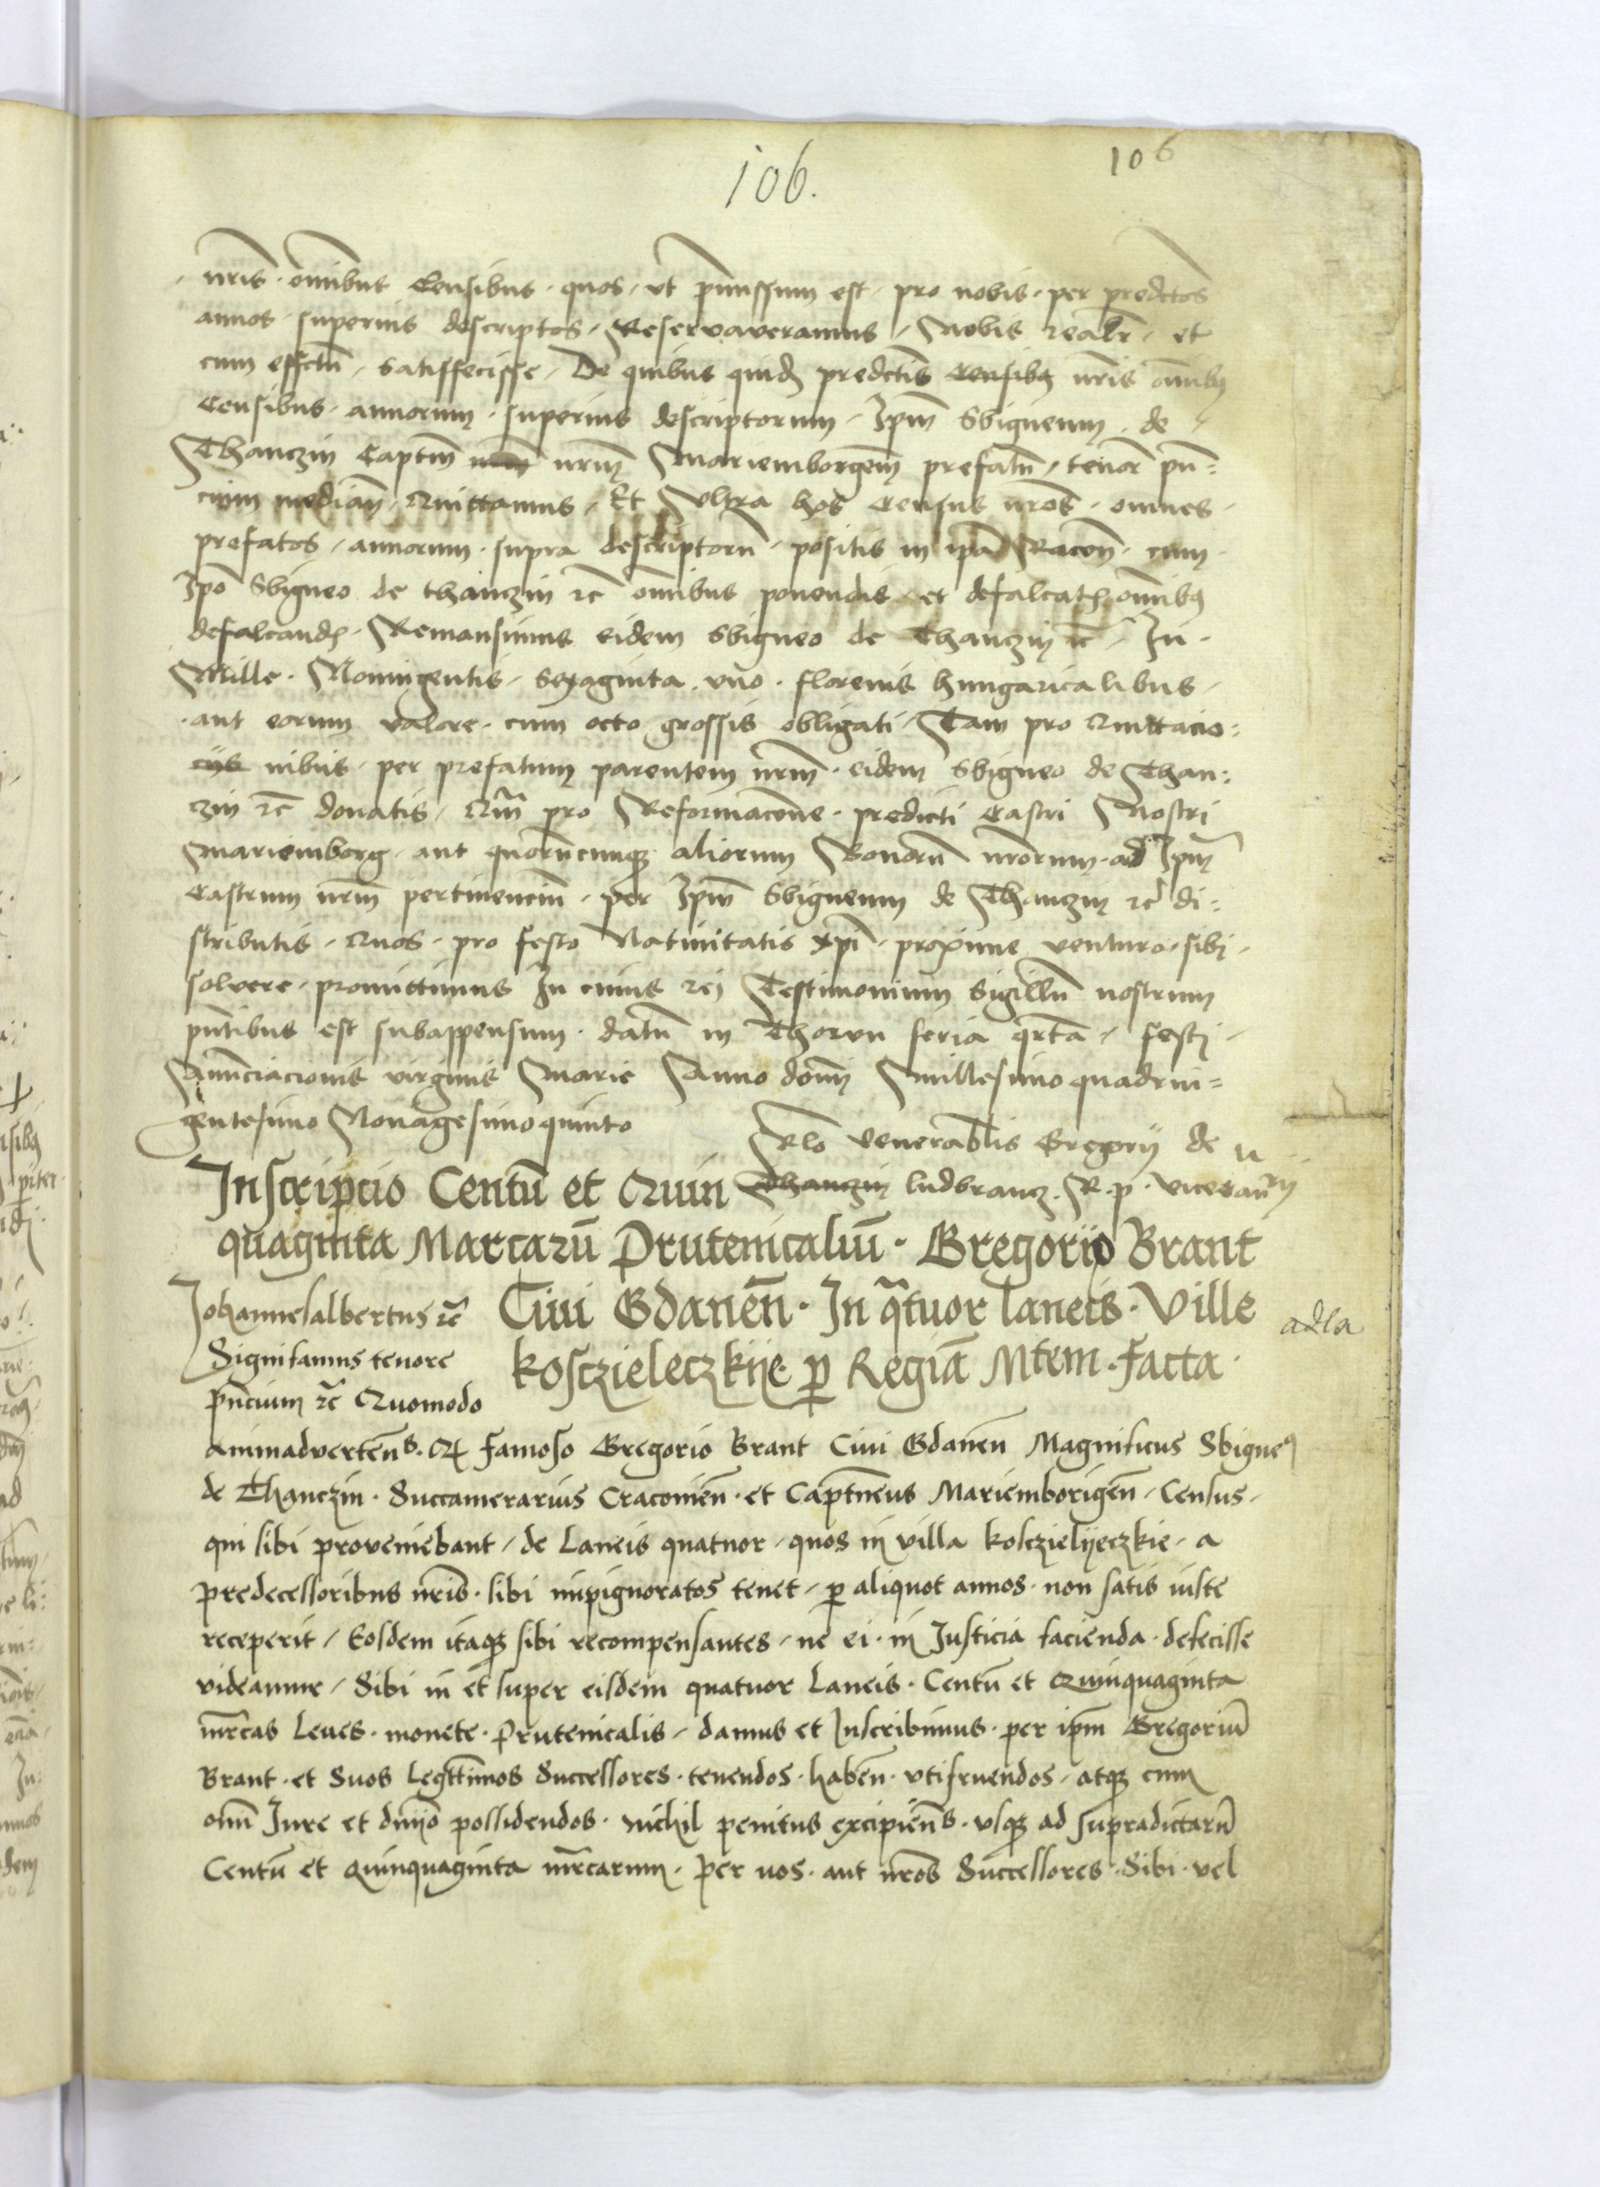 106
106.
nris omnibus Censibus quos ut premissum est pro nobis per predctos
annos superius descriptos Reservaveramus Nobis realr et
cum effctu satisfecisse De quibus quid predctis Censibq nris omibq
Censibus annorum superius descriptorum Ipm Sbigneum de
Thanczin Captm nrm Mariemborgem prefatu tenor pn=
cium median Quittamus Et Ultra hos Census nros omnes
prefatos annorum supra descriptoru positis in ipa Racon cum
Ipo Sbigneo de thanczin rc omnibus ponendis et defalcat omibq
defalcand Remansimus eidem Sbigneo de Thanczin rc In
Mille Nonningentis Sexaginta uno florenis hungaricalibus
aut eorum valore cum octo grossis obligati Tam pro Quittacio=
nibus per prefatum parentem nrm eidem Sbigneo de Than=
czin rc donatis Qm pro Reformacone predicti Castri Nostri
Mariemborg aut quorucumqz aliorum Bonoru nrorum ad Ipm
Castrum nrm pertinenciu per Ipm Sbigneum de Thanczin rc di=
stributis Quos pro festo Nativitatis xpi proxime venturo sibi
solvere promittimus In cuius rei Testimonium Sigillu nostrum
pntibus est subappensum datu in Thorun feria qrta festi
Annunciacionis virginis Marie Anno domi Millesimo quadrin=
gentesimo Nonagesimo quinto
Rlo venerablis Gregorij de
Thanczin ludbrancz R p vicecanrij
Inscripcio Centu et Quin
quaginta Marcaru Prutenicaliu Gregorio Brant
Civi Gdanen In qtuor laneis Ville
kosczieleczkije p Regia Mtem facta
adla
Johannesalbertus rc
Significamus tenore
pncium rc Quomodo
animadvertens Q famoso Gregorio Brant Civi Gdanen Magnificus Sbigne9
de Thanczin Succamerarius Cracovien et Captneus Mariemborigen Census
qui sibi proveniebant de Laneis quatuor quos in villa kosczielyeczkie a
predecessoribus nris sibi impignoratos tenet p aliquot annos non satis iuste
receperit Eosdem itaqz sibi recompensantes ne ei in Justicia facienda defecisse
videamur Sibi in et super eisdem quatuor Laneis Centu et Quinquaginta
mrcas Leves monete Prutenicalis damus et Inscribimus per ipm Gregoriu
Brant et Suos Legttimos Successores tenendos haben utifruendos atqz cum
omi Jure et dnio possidendos nichil penitus excipiens usqz ad supradictaru
Centu et Quinquaginta mrcarum Per nos aut nros Successores Sibi vel